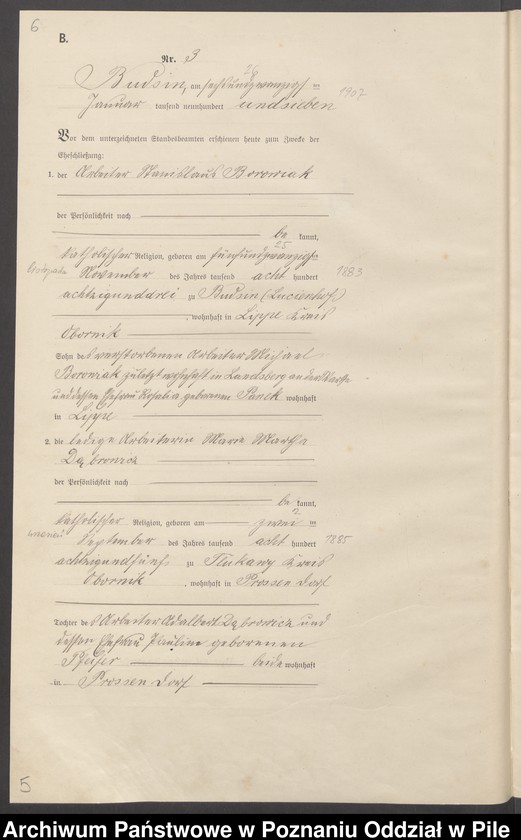 6
B.
Nr. 3
26
Budsin, am sechsundzwanzigsten
Januar tausend neunhundert undsieben 1907
Vor dem unterzeichneten Standesbeamten erschienen heute zum Zwecke der
Eheschließung:
1. der Arbeiter Stanislaus Borowiak
der Persönlichkeit nach
be kannt,
25
katholischer Religion, geboren am fünfundzwanzigsten
November des Jahres tausend acht hundert 1883
achtzigunddrei zu Budsin (Lucienhof)
, wohnhaft in Lippe Kreis
Obornik
Sohn des verstorbenen Arbeiter Michael
Borowiak zuletzt wohnhaft in Landsberg an der Warthe
und dessen Ehefrau Rosalia geborenen Panek wohnhaft
in Lippe
2. die ledige Arbeiterin Marie Martha
Dąbrowicz
der Persönlichkeit nach
be kannt,
2
katholischer Religion, geboren am zwei ten
September des Jahres tausend acht hundert 1885
achtzigundfünf zu Tlukawy Kreis
Obornik , wohnhaft in Prossen Dorf
Tochter des Arbeiter Adalbert Dąbrowicz und
dessen Ehefrau Pauline geborenen
beide wohnhaft
in Prossen Dorf
5
Archiwum Państwowe w Poznaniu Oddział w Pile